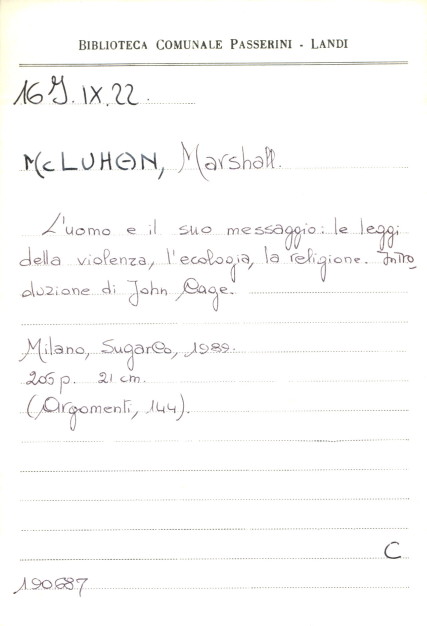 BIBLIOTECA COMUNALE PASSERINI - LANDI
16 J. IX. 22.
McLUHAN, Marshall.
L'uomo e il suo messaggio: le leggi
della violenza, l'ecologia, la religione. Intro
duzione di John Cage.
Milano, SugarCo, 1989.
205 p. 21 cm.
(Argomenti, 144).
C
190687